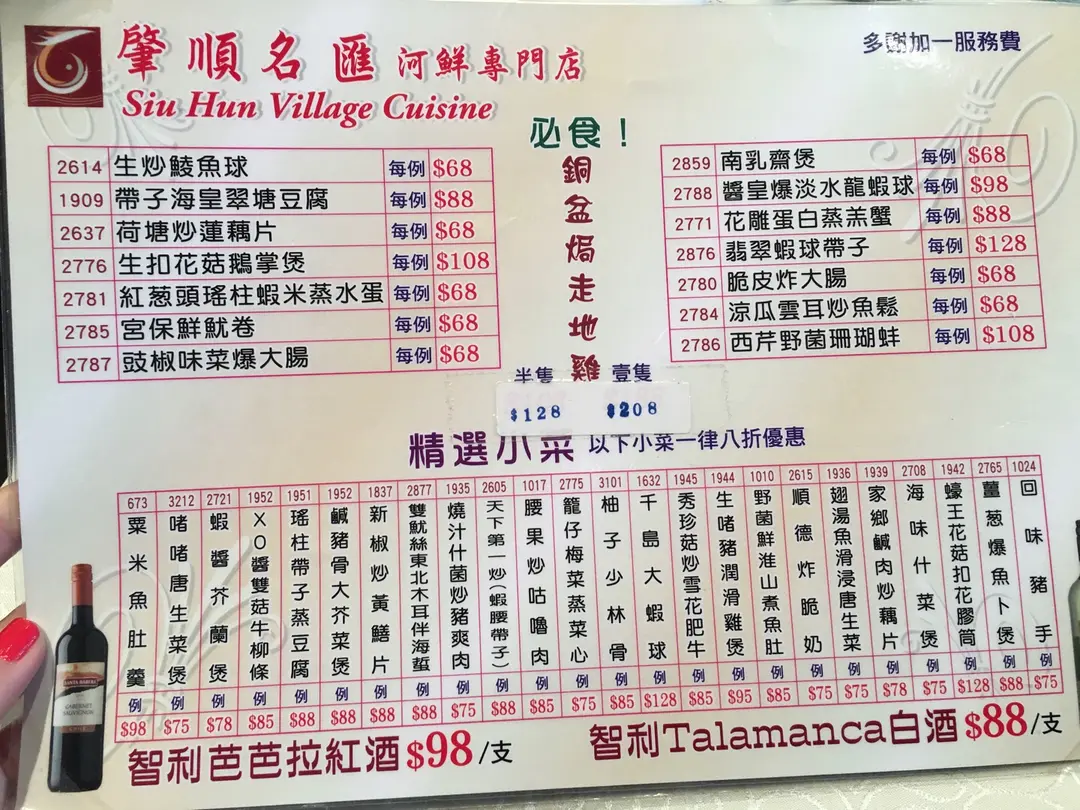 肇順名匯 河鮮專門店
Siu Hun Village Cuisine
多謝加一服務費
2614 生炒鯪魚球 每例 $68
1909 帶子海皇翠塘豆腐 每例 $88
2637 荷塘炒蓮藕片 每例 $68
2776 生扣花菇鵝掌煲 每例 $108
2781 紅葱頭瑤柱蝦米蒸水蛋 每例 $68
2785 宮保鮮魷卷 每例 $68
2787 豉椒味菜爆大腸 每例 $68
必食！
銅盆焗走地雞
半隻 壹隻
$128 $208
2859 南乳齋煲 每例 $68
2788 醬皇爆淡水龍蝦球 每例 $98
2771 花雕蛋白蒸羔蟹 每例 $88
2876 翡翠蝦球帶子 每例 $128
2780 脆皮炸大腸 每例 $68
2784 涼瓜雲耳炒魚鬆 每例 $68
2786 西芹野菌珊瑚蚌 每例 $108
精選小菜 以下小菜一律八折優惠
673 粟米魚肚羹 例 $98
3212 啫啫唐生菜煲 例 $75
2721 蝦醬芥蘭煲 例 $78
1952 XO醬雙菇牛柳條 例 $85
1951 瑤柱帶子蒸豆腐 例 $88
1952 鹹豬骨大芥菜煲 例 $88
1837 新椒炒黃鱔片 例 $88
2877 雙魷絲東北木耳伴海蜇 例 $88
1935 燒汁什菌炒豬爽肉 例 $75
2605 天下第一炒(蝦腰帶子) 例 $88
1017 腰果炒咕嚕肉 例 $85
2775 籠仔梅菜蒸菜心 例 $75
3101 柚子少林骨 例 $85
1632 千島大蝦球 例 $128
1945 秀珍菇炒雪花肥牛 例 $85
1944 生啫豬潤滑雞煲 例 $95
1010 野菌鮮淮山煮魚肚 例 $85
2615 順德炸脆奶 例 $75
1936 翅湯魚滑浸唐生菜 例 $75
1939 家鄉鹹肉炒藕片 例 $78
2708 海味什菜煲 例 $75
1942 蠔王花菇扣花膠筒 例 $128
2765 薑葱爆魚卜煲 例 $88
1024 回味豬手 例 $75
智利芭芭拉紅酒$98/支
智利Talamanca白酒$88/支
SANTA BARBARA
CABERNET
SAUVIGNON